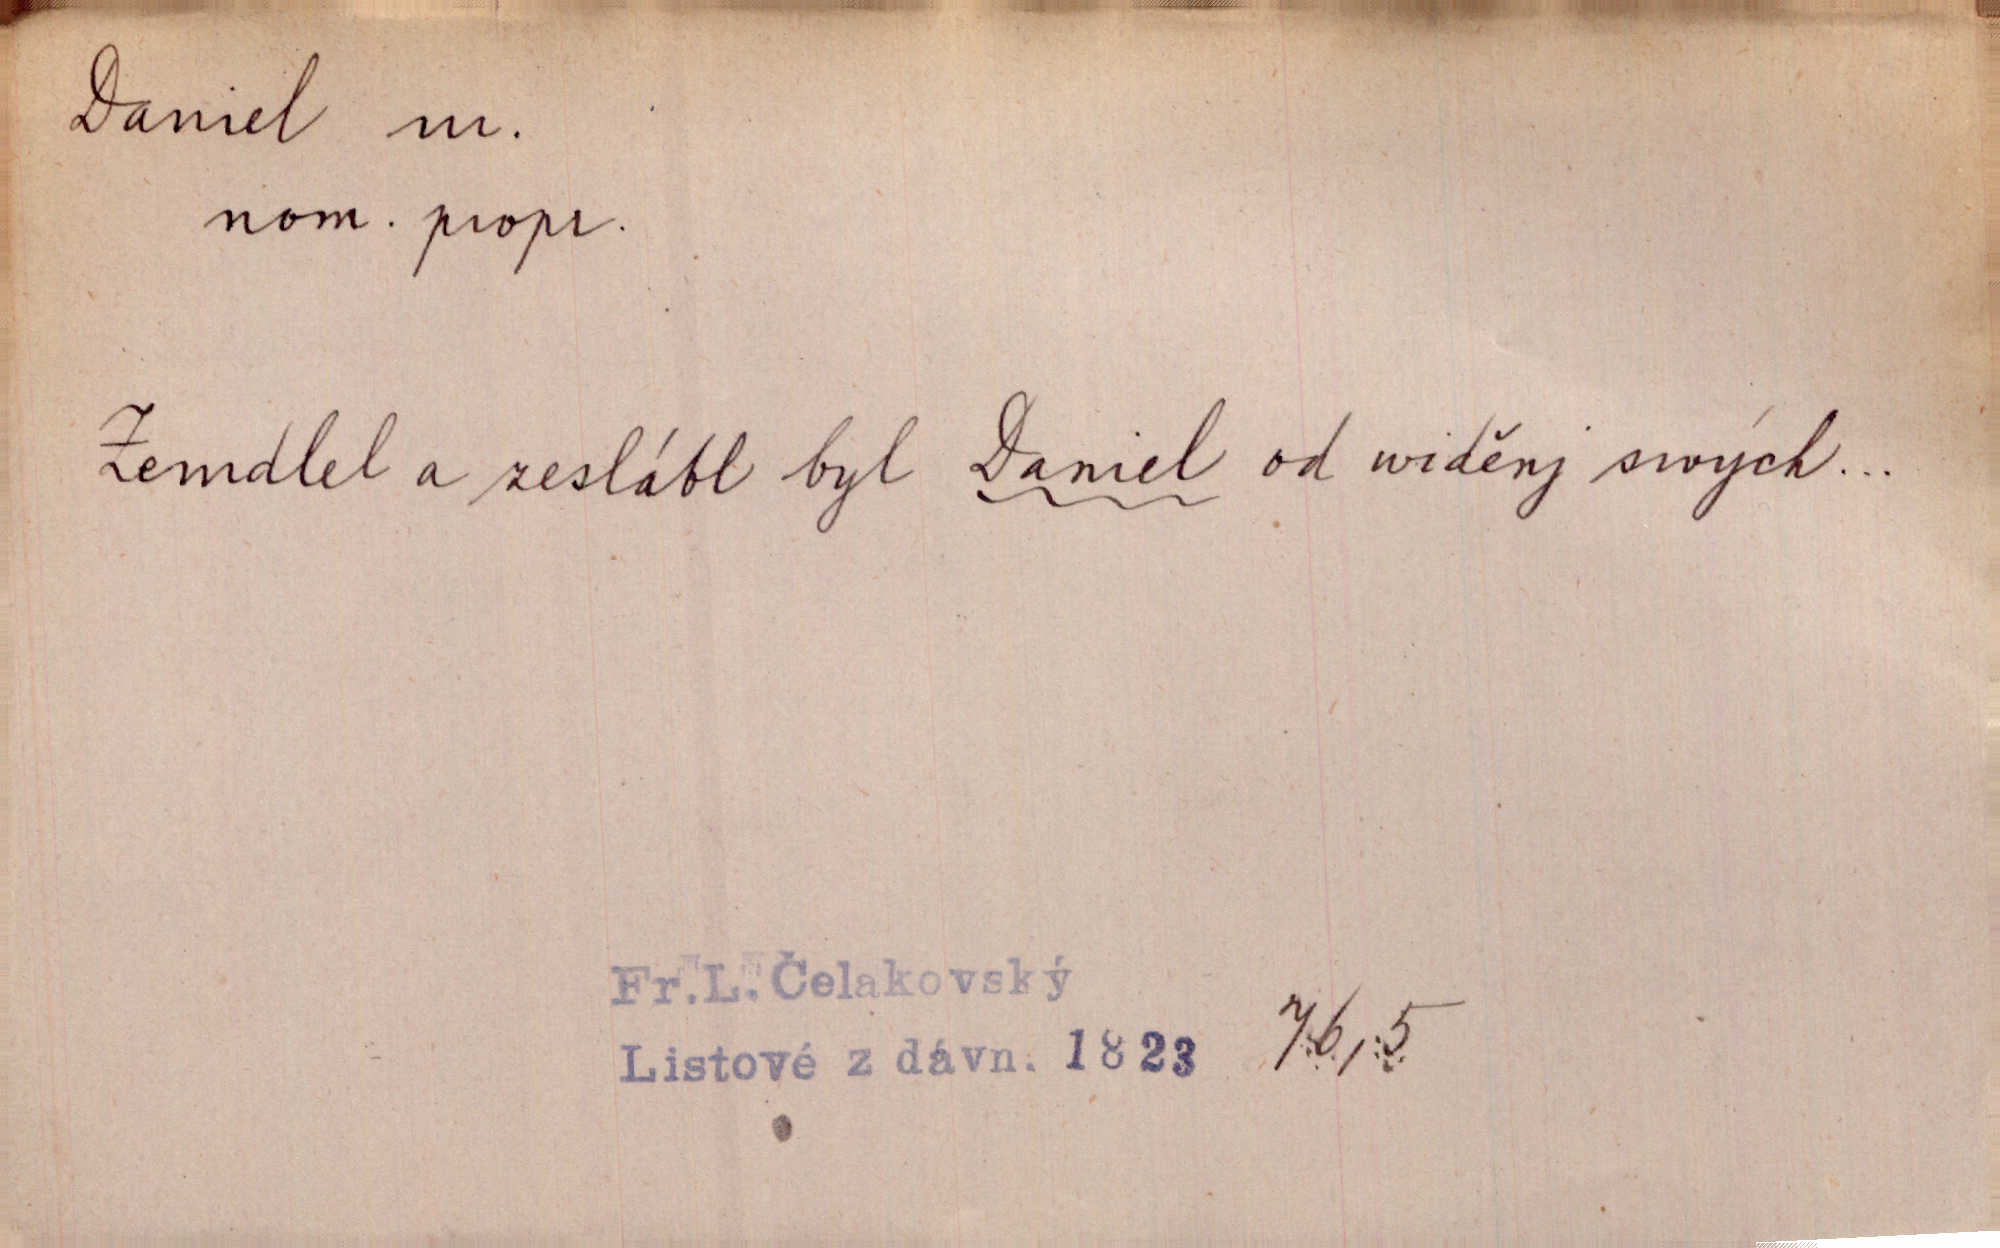 Daniel m.
nom. propr.
Zemdlel a zeslábl byl Daniel od widěnj swých...
Fr.L. Čelakovský
Listové z dávn. 1823 76,5